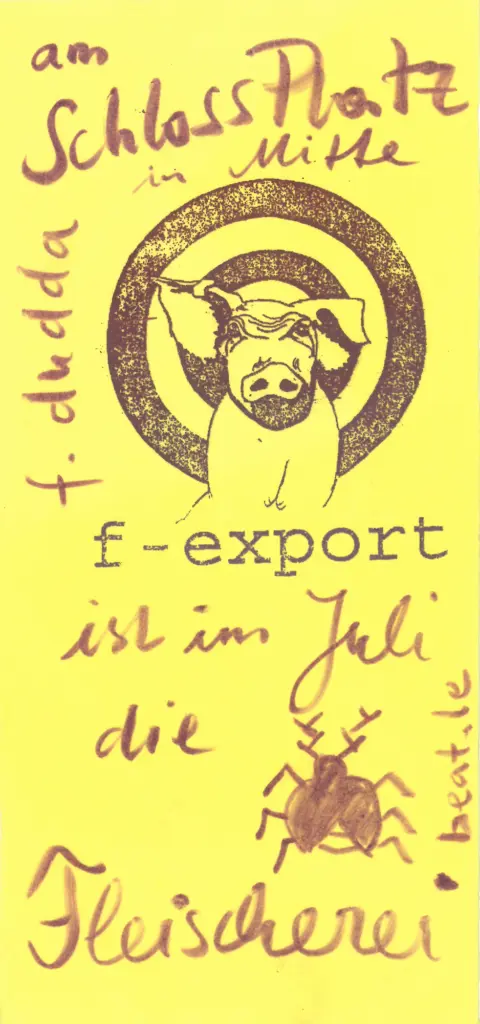 am
SchlossPlatz
in Mitte
f. dudda
f-export
ist im Juli
die
beat.le
Fleischerei